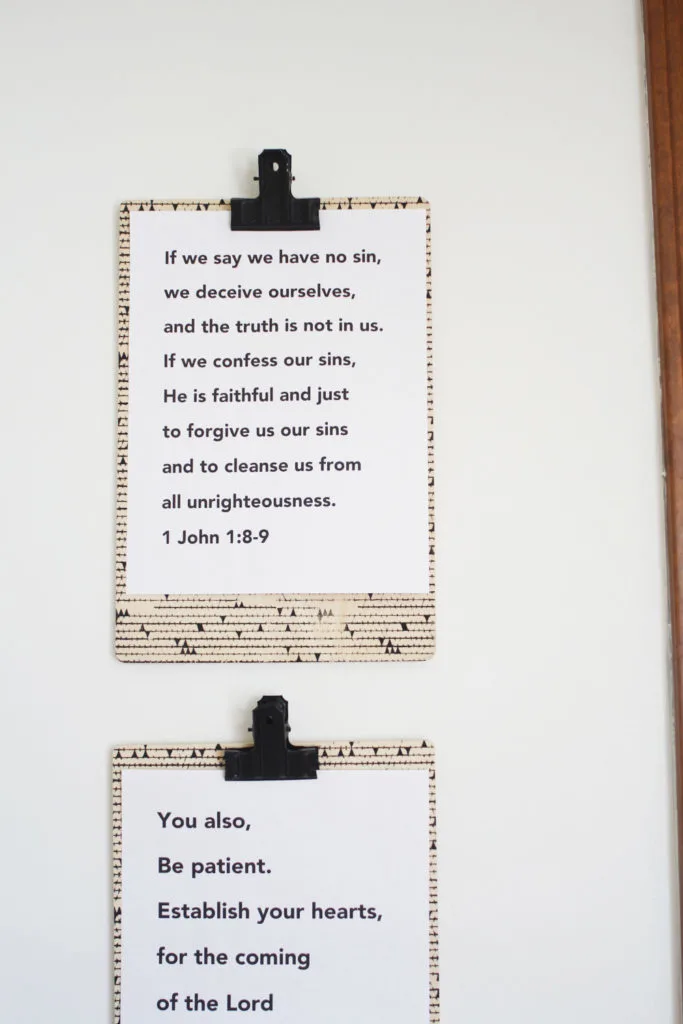 If we say we have no sin,
we deceive ourselves,
and the truth is not in us.
If we confess our sins,
He is faithful and just
to forgive us our sins
and to cleanse us from
all unrighteousness.
1 John 1:8-9
You also,
Be patient.
Establish your hearts,
for the coming
of the Lord